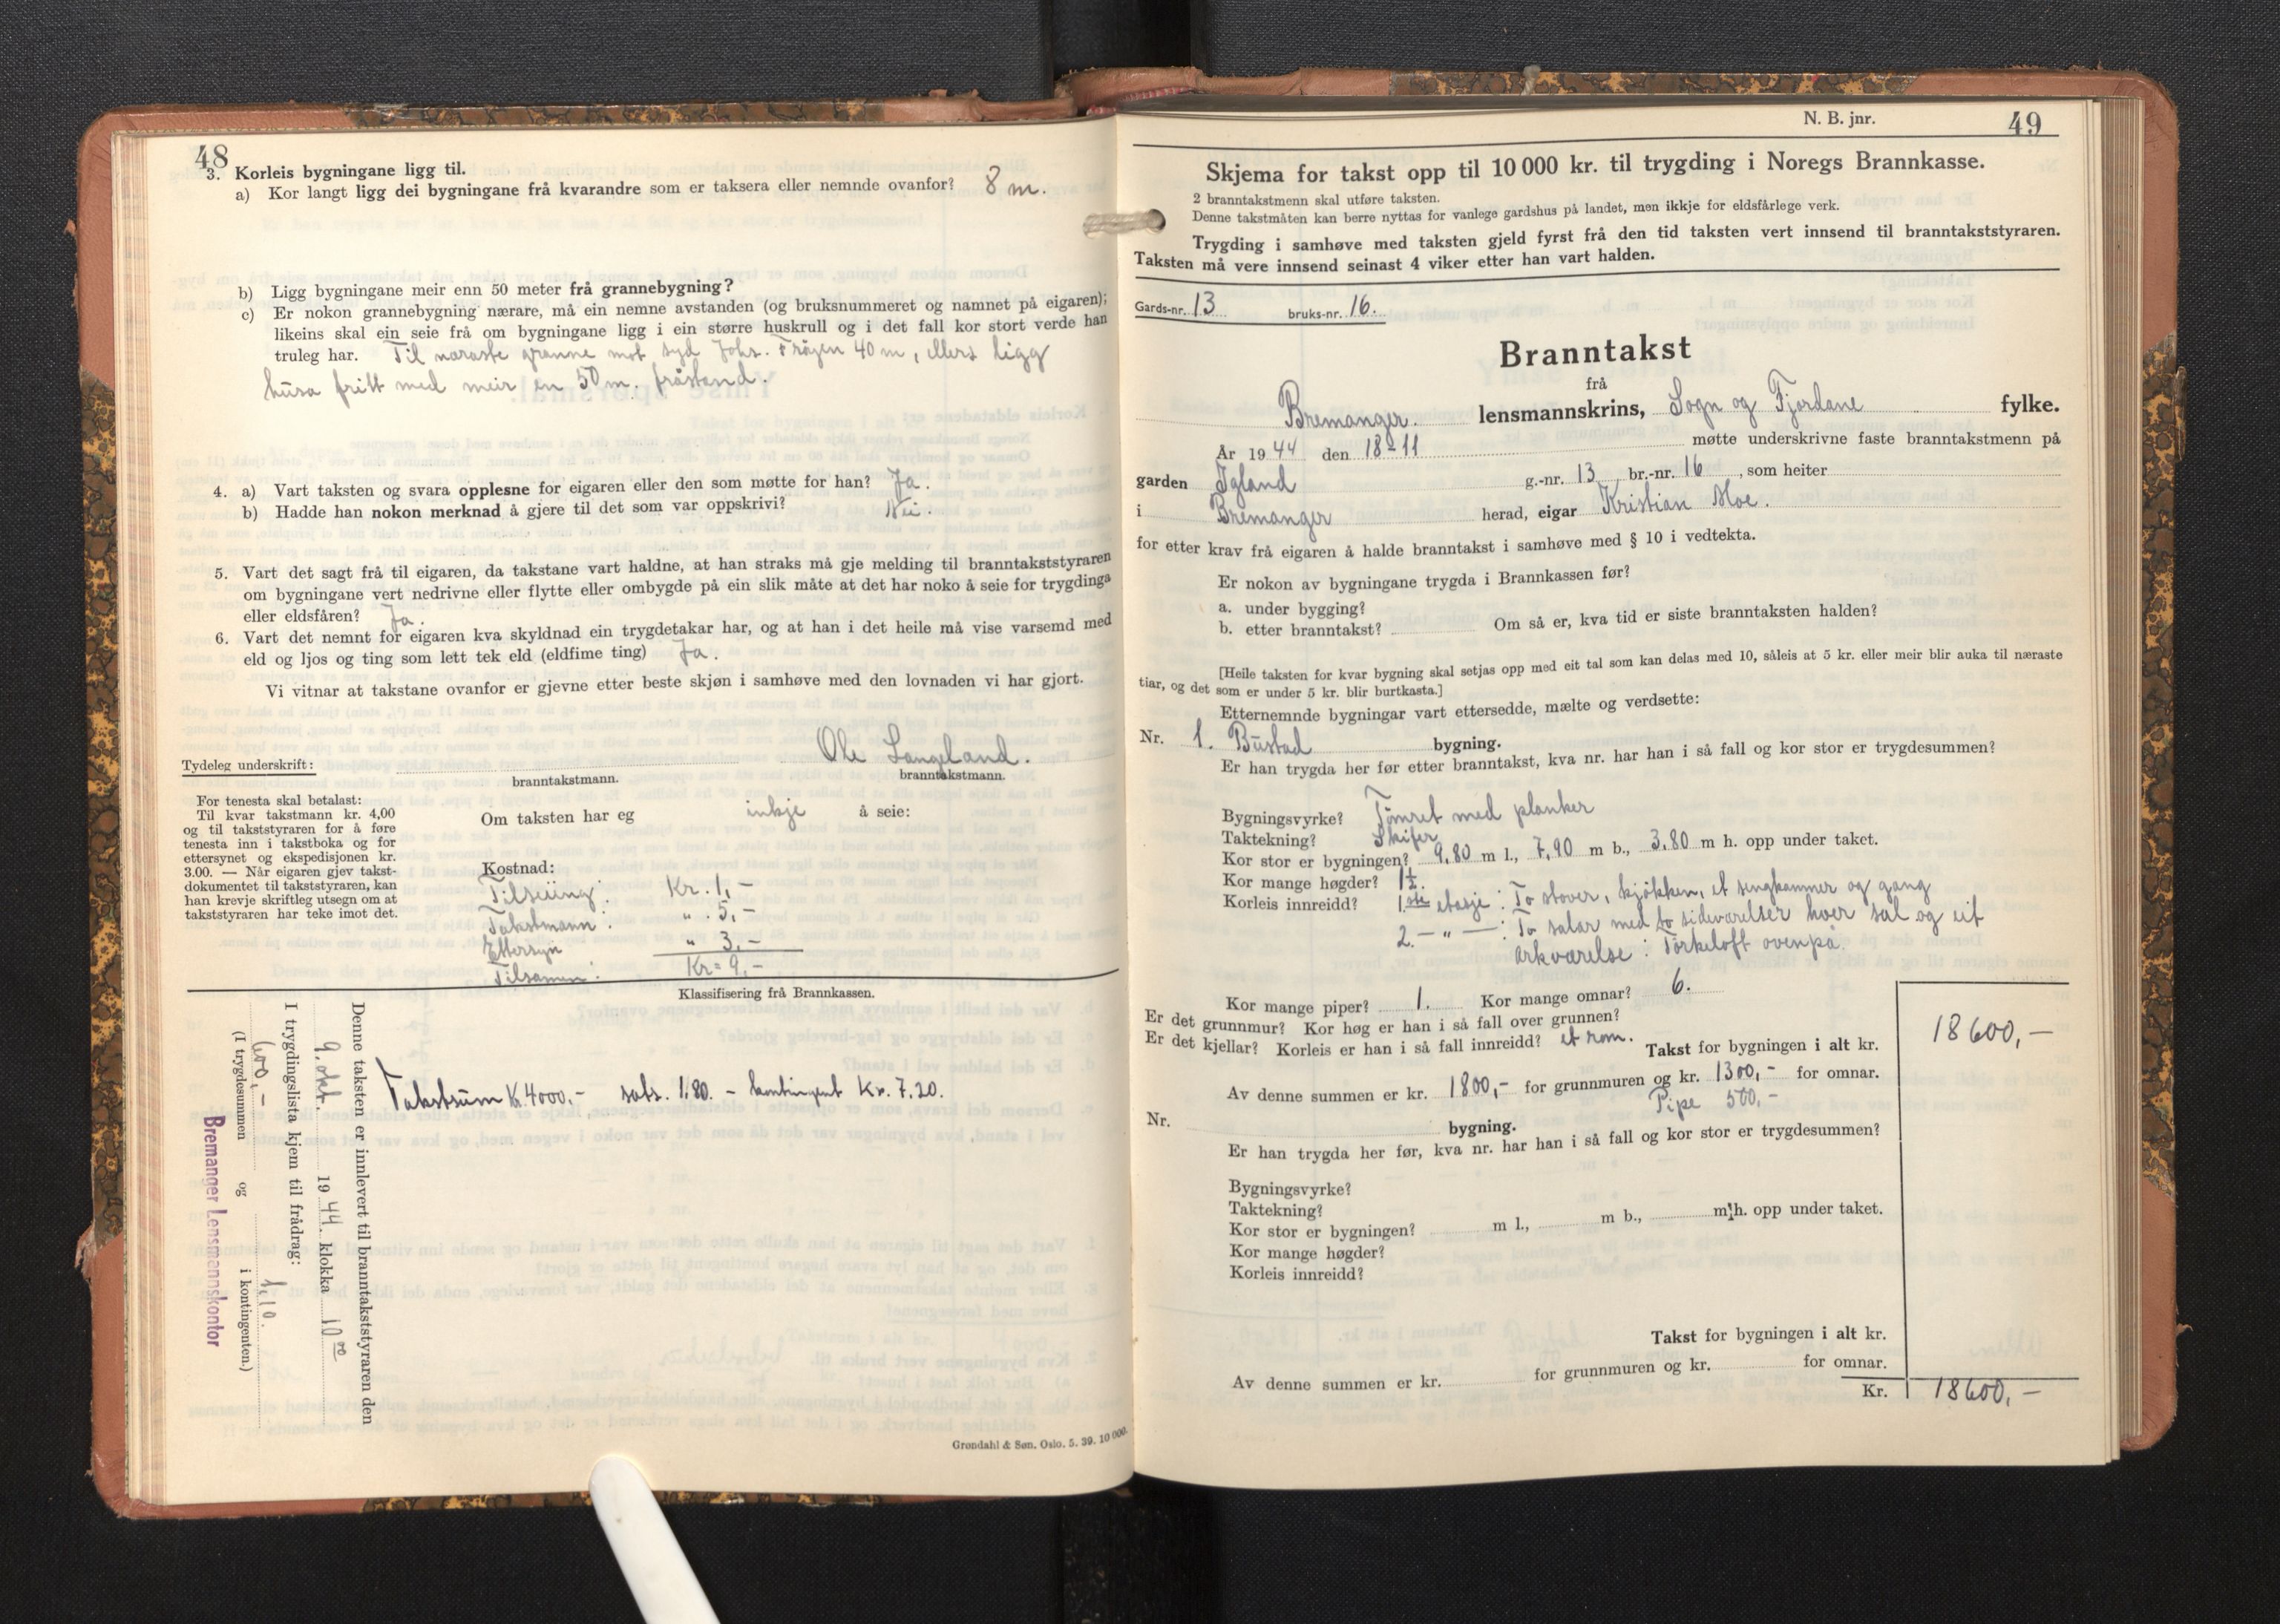 48
3. Korleis bygningane ligg til.
a) Kor langt ligg dei bygningane frå kvarandre som er taksera eller nemnde ovanfor? 8 m.
b) Ligg bygningane meir enn 50 meter frå grannebygning?
c) Er nokon grannebygning nærare, må ein nemne avstanden (og bruksnummeret og namnet på eigaren);
likeins skal ein seie frå om bygningane ligg i ein større huskrull og i det fall kor stort verde han
truleg har. Til næraste granne mot syd Johs. Frøyen 40 m, ellers ligg
husa fritt med meir en 50 m. fråstand.
4. a) Vart taksten og svara opplesne for eigaren eller den som møtte for han? Ja.
b) Hadde han nokon merknad å gjere til det som var oppskrivi? Nei.
5. Vart det sagt frå til eigaren, da takstane vart haldne, at han straks må gje melding til branntakststyraren
om bygningane vert nedrivne eller flytte eller ombygde på ein slik måte at det har noko å seie for trygdinga
eller eldsfåren? Ja.
6. Vart det nemnt for eigaren kva skyldnad ein trygdetakar har, og at han i det heile må vise varsemd med
eld og ljos og ting som lett tek eld (eldfime ting) Ja.
Vi vitnar at takstane ovanfor er gjevne etter beste skjøn i samhøve med den lovnaden vi har gjort.
Tydeleg underskrift: Ole Langeland.
branntakstmann. branntakstmann.
For tenesta skal betalast:
Til kvar takstmann kr. 4,00
og til takststyraren for å føre
tenesta inn i takstboka og for
ettersynet og ekspedisjonen kr.
3.00. — Når eigaren gjev takst-
dokumentet til takststyraren, kan
han krevje skriftleg utsegn om at
takststyraren har teke imot det.
Om taksten har eg inkje å seie:
Kostnad:
Tilseiing: Kr. 1,-
Takstmann: " 5,-
Ettersyn " 3,-
Tilsamen: Kr= 9,-
Klassifisering frå Brannkassen.
Takstsum Kr. 4000,- sats. 1.80. - kontingent Kr. 7.20.
Denne taksten er innlevert til branntakststyraren den
9. okt. 1944 klokka 10 00
I trygdingslista kjem til frådrag:
600,- 1.10.
(I trygdesummen og i kontingenten.)
Bremanger Lensmannskontor
Grøndahl & Søn. Oslo. 5. 39. 10 000.
N. B. jnr. 49
Skjema for takst opp til 10 000 kr. til trygding i Noregs Brannkasse.
2 branntakstmenn skal utføre taksten.
Denne takstmåten kan berre nyttas for vanlege gardshus på landet, men ikkje for eldsfårlege verk.
Trygding i samhøve med taksten gjeld fyrst frå den tid taksten vert innsend til branntakststyraren.
Taksten må vere innsend seinast 4 viker etter han vart halden.
Gards-nr. 13 bruks-nr. 16.
Branntakst
frå
Bremanger. lensmannskrins, Sogn og Fjordane fylke.
År 1944 den 18-11 møtte underskrivne faste branntakstmenn på
garden Igland g.-nr. 13, br.-nr. 16, som heiter
i Bremanger herad, eigar Kristian Moe.
for etter krav frå eigaren å halde branntakst i samhøve med § 10 i vedtekta.
Er nokon av bygningane trygda i Brannkassen før?
a. under bygging?
b. etter branntakst? Om så er, kva tid er siste branntaksten halden?
[Heile taksten for kvar bygning skal setjas opp med eit tal som kan delas med 10, såleis at 5 kr. eller meir blir auka til næraste
tiar, og det som er under 5 kr. blir burtkasta.]
Etternemnde bygningar vart ettersedde, mælte og verdsette:
Nr. 1. Bustad bygning.
Er han trygda her før etter branntakst, kva nr. har han i så fall og kor stor er trygdesummen?
Bygningsvyrke? Tömret med planker
Taktekning? Skifer
Kor stor er bygningen? 9,80 m l., 7,90 m b., 3,80 m h. opp under taket.
Kor mange høgder? 1½.
Korleis innreidd? 1ste etasje: To stover, kjökken, et sengkammer og gang
2. — " — : To salar med to sideværelser hver sal og eit
arkværelse: Törkeloft ovenpå.
Kor mange piper? 1. Kor mange omnar? 6.
Er det grunnmur? Kor høg er han i så fall over grunnen?
Er det kjellar? Korleis er han i så fall innreidd? et rom. Takst for bygningen i alt kr. 18600,-
Av denne summen er kr. 1800,- for grunnmuren og kr. 1300,- for omnar.
Pipe 500,-
Nr. bygning.
Er han trygda her før, kva nr. har han i så fall og kor stor er trygdesummen?
Bygningsvyrke?
Taktekning?
Kor stor er bygningen? m l., m b., m h. opp under taket.
Kor mange høgder?
Korleis innreidd?
Takst for bygningen i alt kr.
Av denne summen er kr. for grunnmuren og kr. for omnar.
Kr. 18600,-